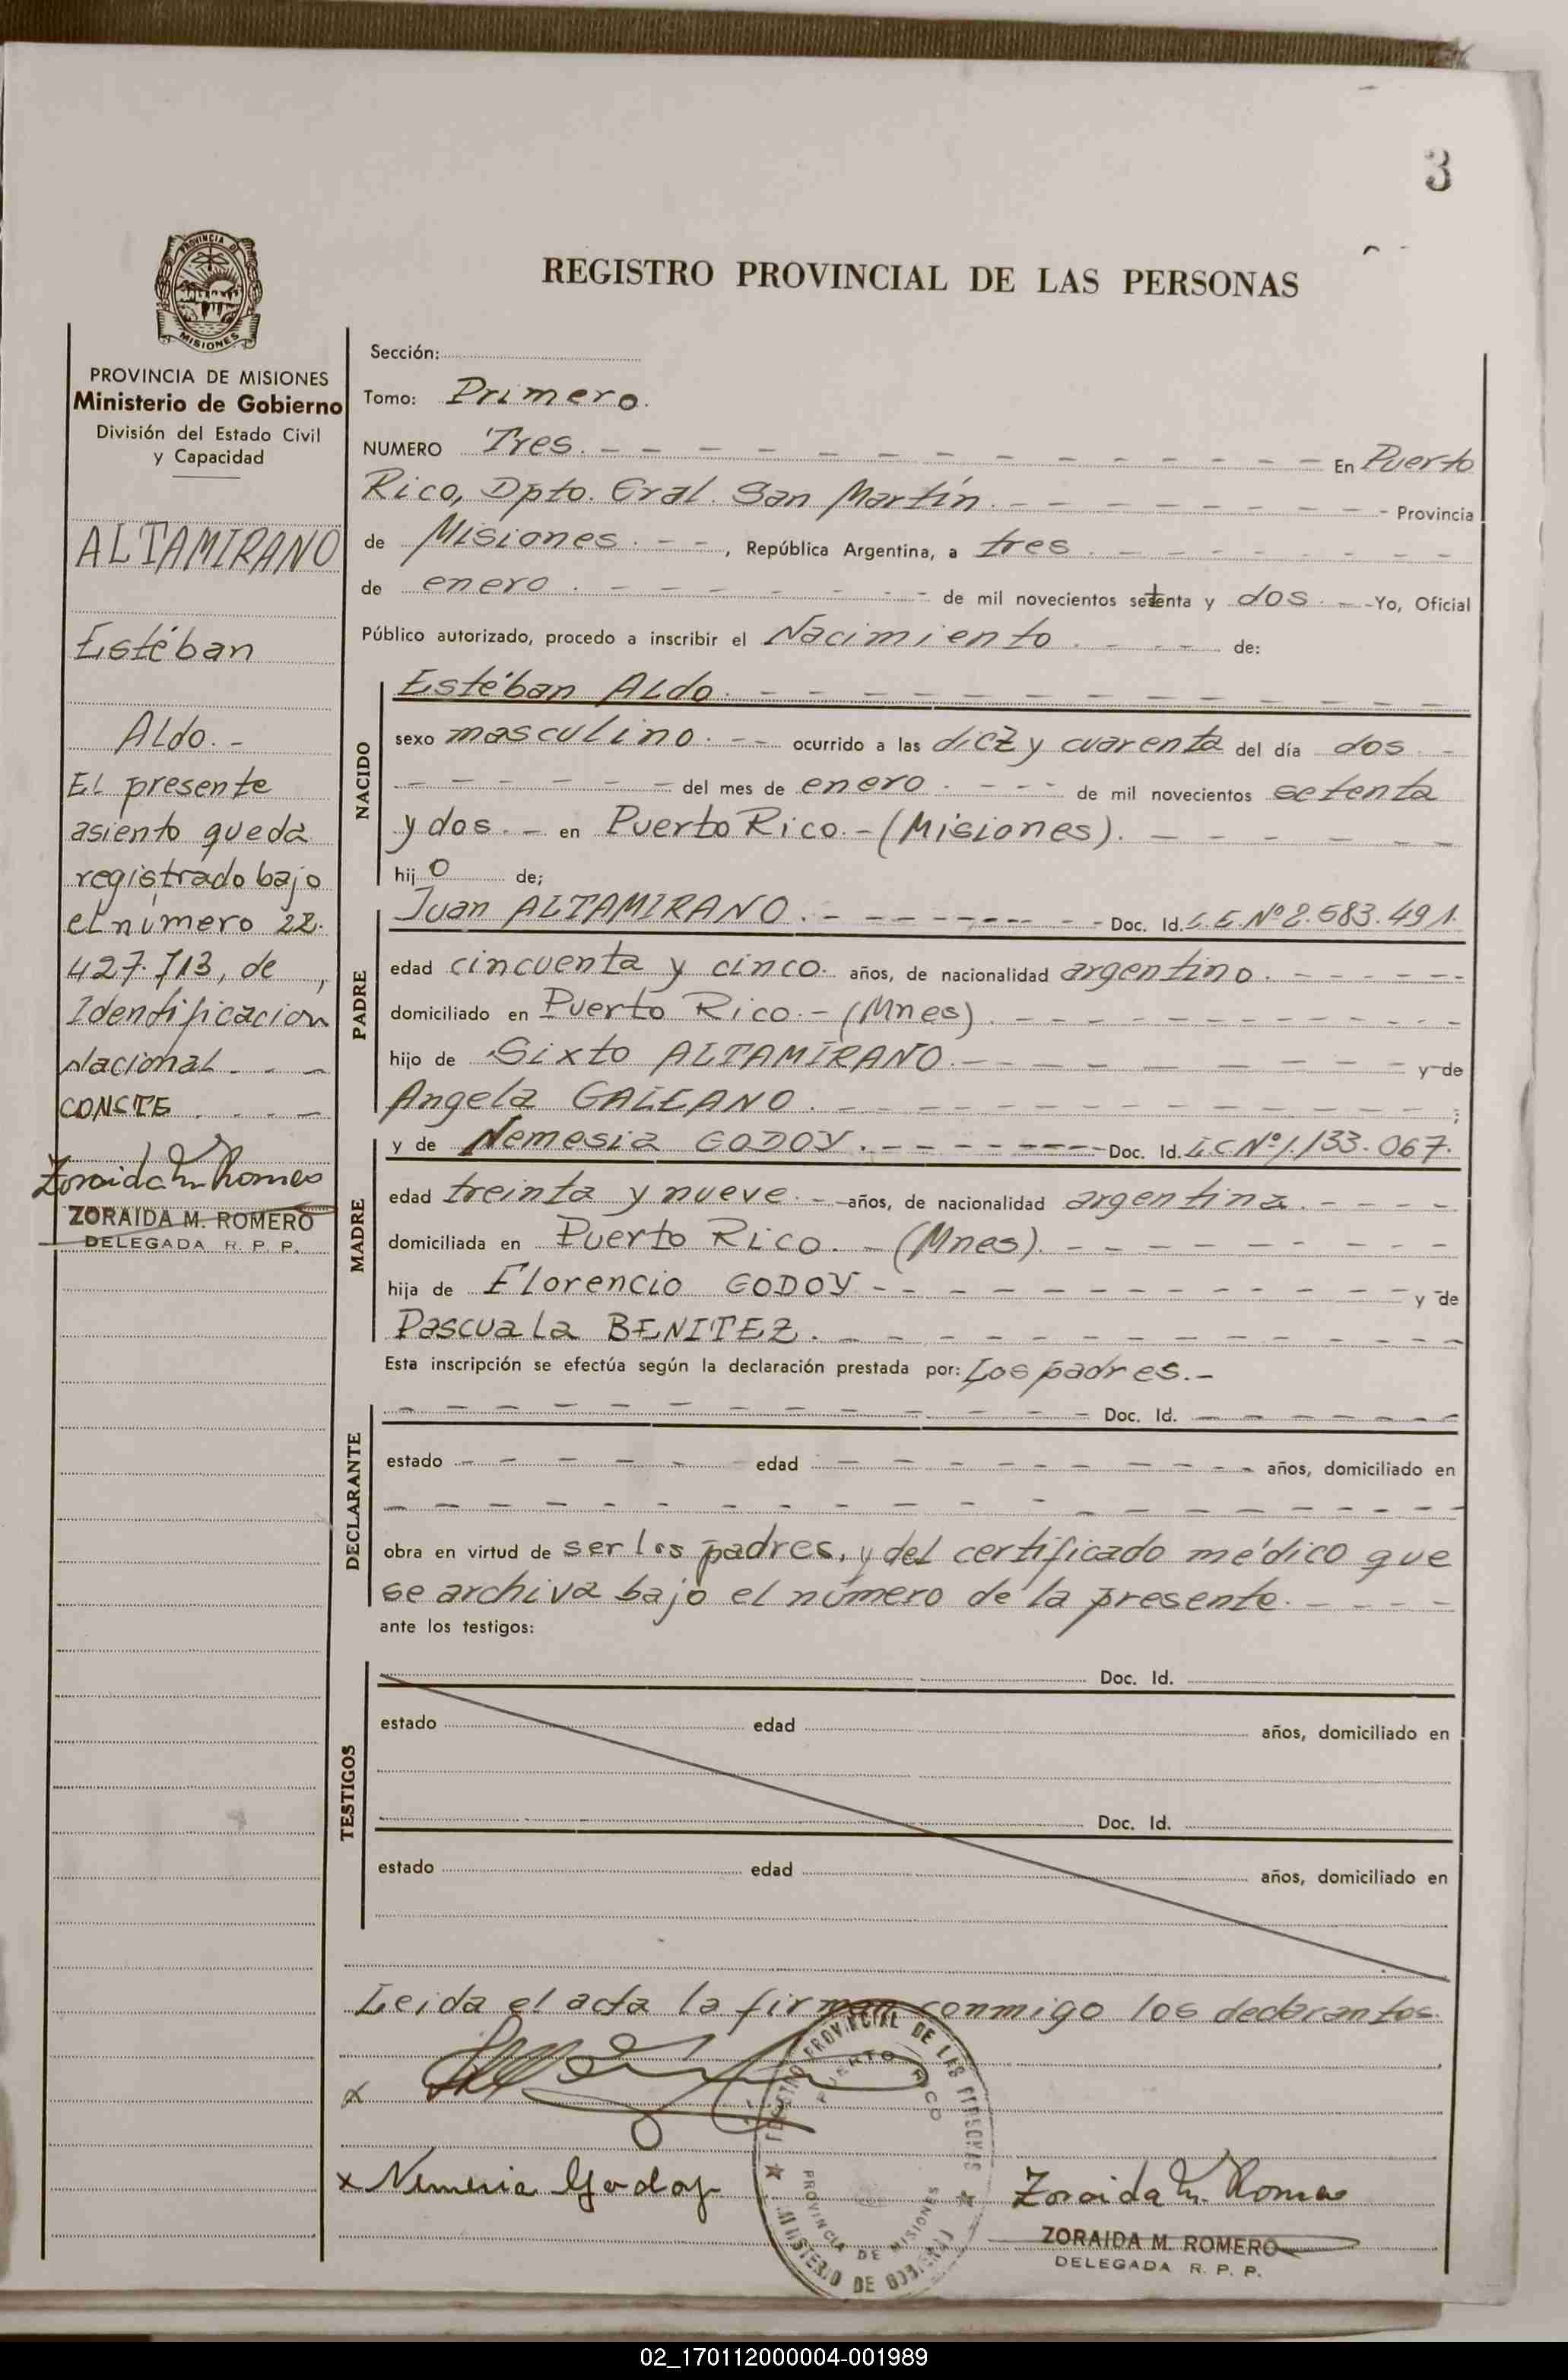 3
PROVINCIA DE
MISIONES
REGISTRO PROVINCIAL DE LAS PERSONAS
PROVINCIA DE MISIONES
Ministerio de Gobierno
División del Estado Civil
y Capacidad
ALTAMIRANO
Estéban
Aldo.-
El presente
asiento queda
registrado bajo
el número 22.
427.713, de
Identificacion
Nacional - - -
CONSTE . - - -
Zoraida M. Romero
ZORAIDA M. ROMERO
DELEGADA R. P. P.
Sección:
Tomo: Primero.
NUMERO Tres. - - - En Puerto
Rico, Dpto. Gral. San Martín. - - - Provincia
de Misiones. - - , República Argentina, a tres. - - -
de enero. - - - de mil novecientos setenta y dos. - Yo, Oficial
Público autorizado, procedo a inscribir el Nacimiento. - - - de:
NACIDO
Estéban Aldo. - - -
sexo masculino. - - ocurrido a las diez y cuarenta del día dos. -
- - - del mes de enero. - - - de mil novecientos setenta
y dos. - en Puerto Rico. - (Misiones). - - -
hijo de;
PADRE
Juan ALTAMIRANO. - - - Doc. Id. L.E. Nº 2.583.491.
edad cincuenta y cinco. años, de nacionalidad argentino. - - -
domiciliado en Puerto Rico. - (Mnes). - - -
hijo de Sixto ALTAMIRANO. - - - y de
Angela GALEANO. - - - ;
MADRE
y de Nemesia GODOY. - - - Doc. Id. L.C. Nº 1.133.067.
edad treinta y nueve. - años, de nacionalidad argentina. - - -
domiciliada en Puerto Rico. - (Mnes). - - -
hija de Florencio GODOY - - - y de
Pascuala BENITEZ. - - -
Esta inscripción se efectúa según la declaración prestada por: Los padres.-
DECLARANTE
- - - Doc. Id. - - -
estado - - - edad - - - años, domiciliado en
- - -
obra en virtud de ser los padres, y del certificado médico que
se archiva bajo el número de la presente. - - -
ante los testigos:
TESTIGOS
Doc. Id.
estado edad años, domiciliado en
Doc. Id.
estado edad años, domiciliado en
Leida el acta la firman conmigo los declarantes.
x
x Nemesia Godoy
REGISTRO PROVINCIAL DE LAS PERSONAS
PUERTO RICO
PROVINCIA DE MISIONES
MINISTERIO DE GOBIERNO
Zoraida M. Romero
ZORAIDA M. ROMERO
DELEGADA R. P. P.
02_170112000004-001989